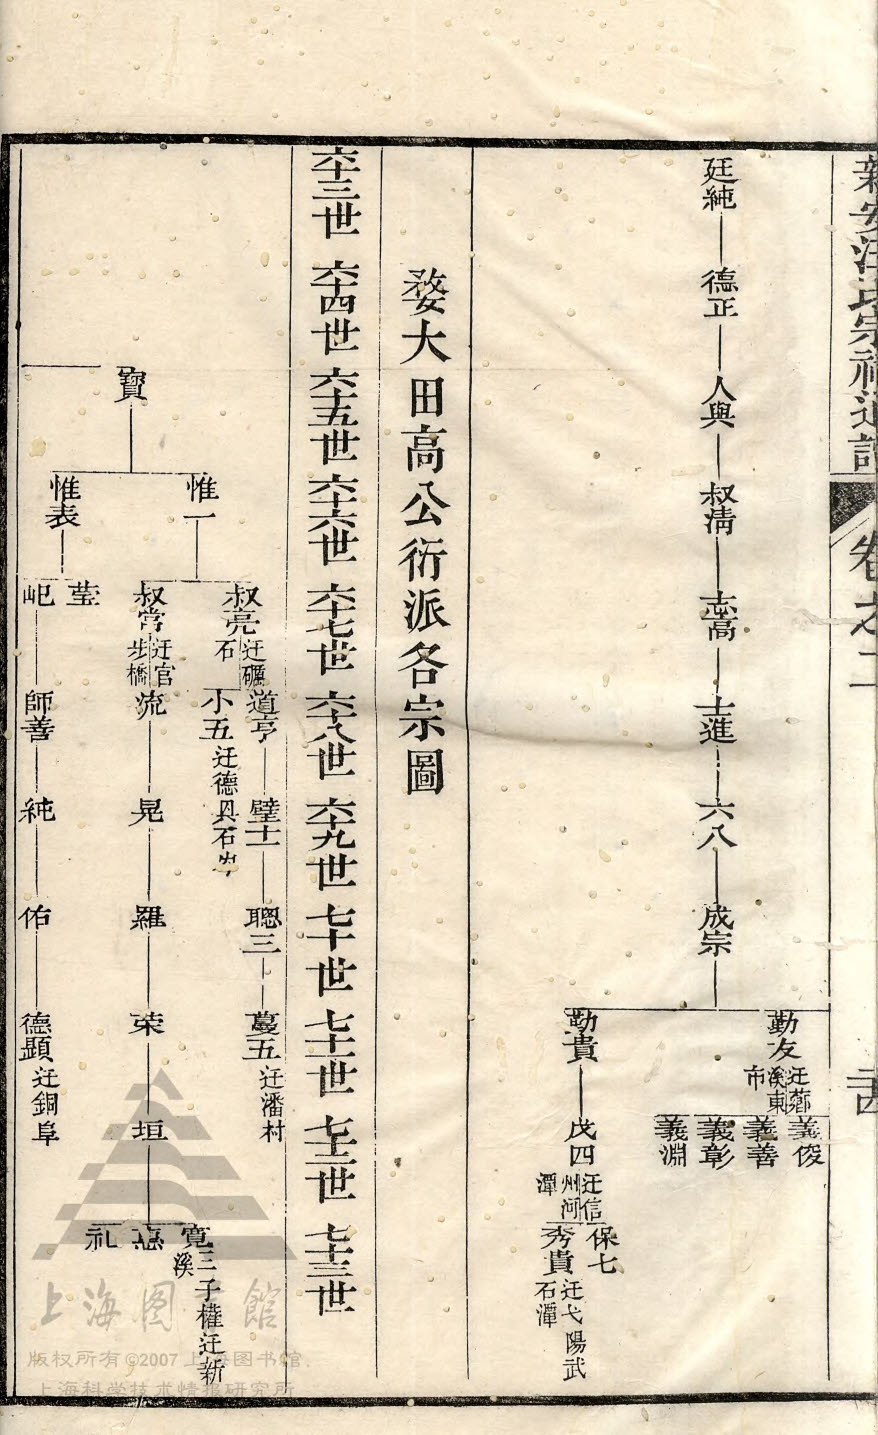 新安汪氏宗祠通譜
卷之二
廷純
德正
人與
叔清
志高
士進
六八
成宗
勤友
迁鄰溪東市
義俊
義善
義彰
義淵
勤貴
戊四
迁信州河潭
保七
秀貴
迁弋陽武石潭
婺大田高公衍派各宗圖
六十三世
六十四世
六十五世
六十六世
六十七世
六十八世
六十九世
七十世
七十一世
七十二世
七十三世
寶
惟一
叔亮
迁礪石
道亨
璧士
聰三
蔓五
迁潘村
小五
迁德
叔常
迁官步橋
流
晃
羅
荣
垣
寬
三子權迁新溪
礼
惟表
莹
屺
師善
純
佑
德顯
迁銅阜
上海图 館
版权所有©2007 上海图书馆
上海科学技术情报研究所